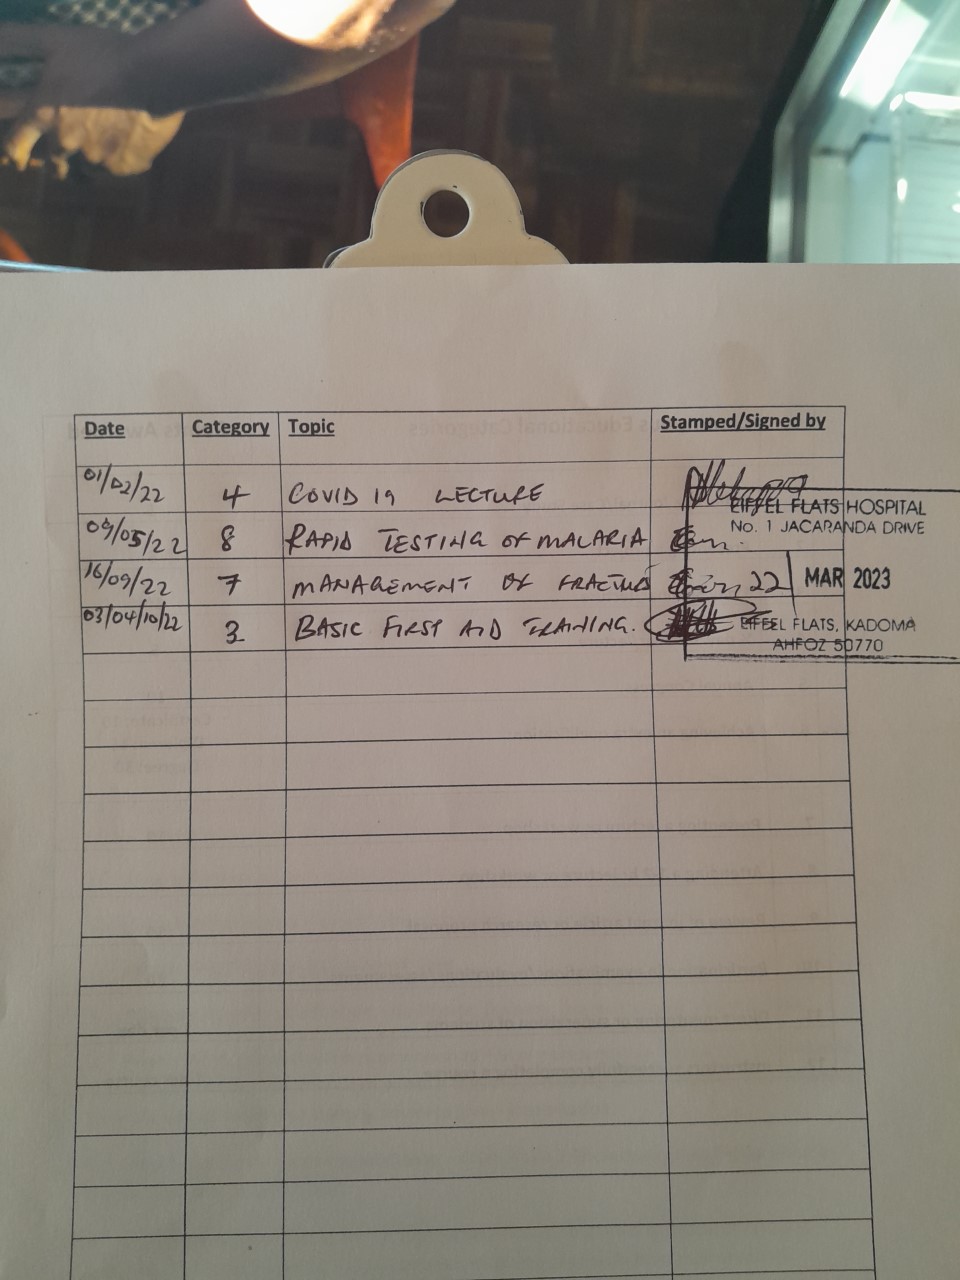 Date Category Topic Stamped/Signed by
01/02/22 4 COVID 19 LECTURE
09/05/22 8 RAPID TESTING OF MALARIA
16/09/22 7 MANAGEMENT OF
03/04/10/22 3 BASIC FIRST AID TRAINING.
EIFFEL FLATS HOSPITAL
No. 1 JACARANDA DRIVE
22 MAR 2023
EIFFEL FLATS, KADOMA
AHFOZ 50770